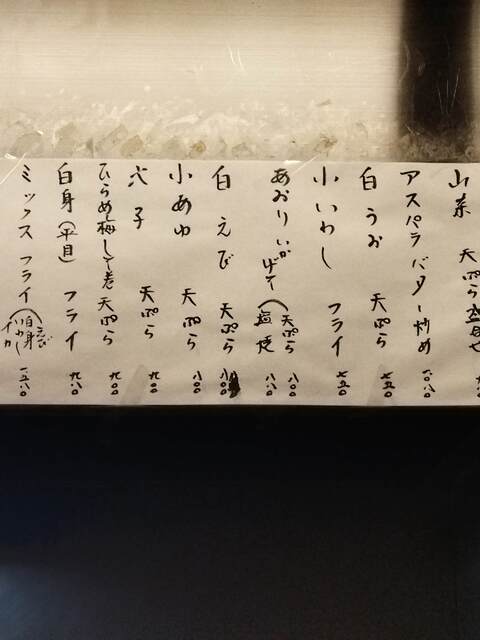 山菜 天ぷら盛合せ
アスパラバター炒め 六八〇
白うお 天ぷら 七五〇
小いわし フライ 七五〇
あおりいか げそ (天ぷら 八〇〇
塩焼 八八〇
白えび 天ぷら 八八〇
小あゆ 天ぷら 八〇〇
穴子 天ぷら 九〇〇
ひらめ梅しそ巻 天ぷら 八〇〇
白身(平目) フライ 九八〇
ミックスフライ (えび 白身 いわし イカ) 一三八〇